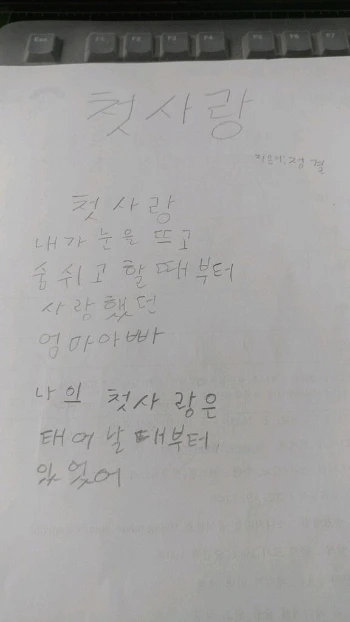 첫사랑
지은이: 정결
첫사랑
내가 눈을 뜨고
숨쉬고 할때부터
사랑했던
엄마아빠
나의 첫사랑은
태어날때부터,
있었어
Esc
F1
F2
F3
F4
F5
F6
F7